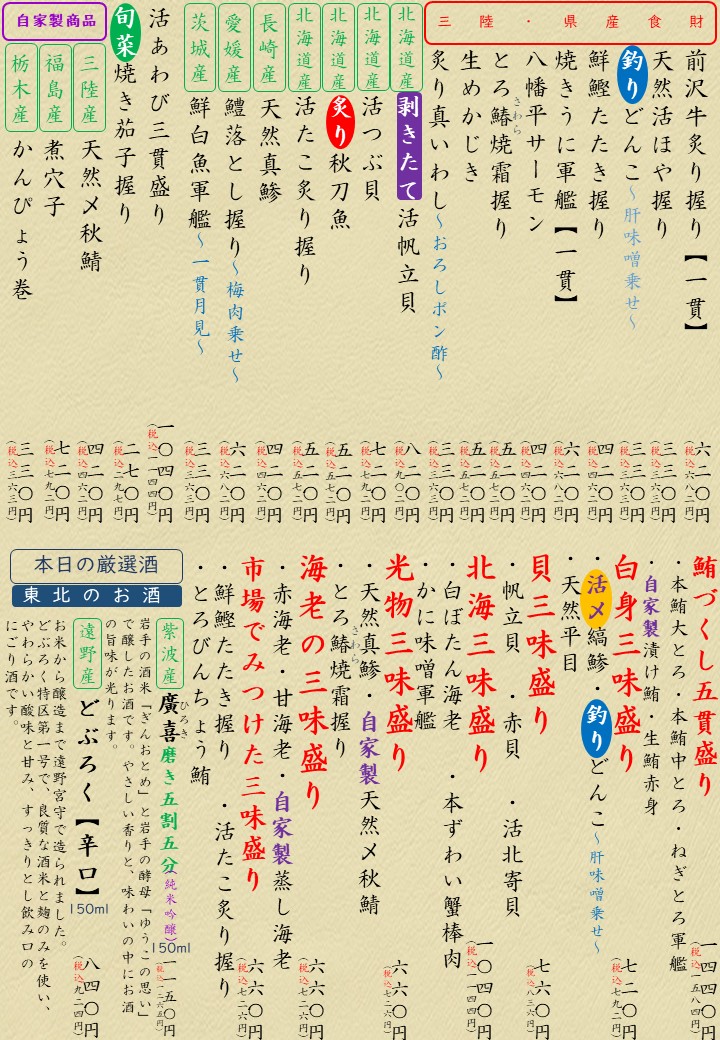 三陸・県産食財
前沢牛炙り握り【一貫】 六二〇円 (税込六八二円)
天然活ほや握り 三三〇円 (税込三六三円)
釣りどんこ～肝味噌乗せ～ 三三〇円 (税込三六三円)
鮮鰹たたき握り 四二〇円 (税込四六二円)
焼きうに軍艦【一貫】 六二〇円 (税込六八二円)
八幡平サーモン 四二〇円 (税込四六二円)
とろ鰆焼霜握り 五二〇円 (税込五七二円)
さわら
生めかじき 五二〇円 (税込五七二円)
炙り真いわし～おろしポン酢～ 三三〇円 (税込三六三円)
北海道産 剥きたて活帆立貝 八二〇円 (税込九〇二円)
北海道産 活つぶ貝 七二〇円 (税込七九二円)
北海道産 炙り秋刀魚 五二〇円 (税込五七二円)
北海道産 活たこ炙り握り 五二〇円 (税込五七二円)
長崎産 天然真鯵 四二〇円 (税込四六二円)
愛媛産 鱧落とし握り～梅肉乗せ～ 六二〇円 (税込六八二円)
茨城産 鮮白魚軍艦～一貫月見～ 三三〇円 (税込三六三円)
活あわび三貫盛り 一〇四〇円 (税込一一四四円)
旬菜焼き茄子握り 二七〇円 (税込二九七円)
自家製商品
三陸産 天然〆秋鯖 四二〇円 (税込四六二円)
福島産 煮穴子 七二〇円 (税込七九二円)
栃木産 かんぴょう巻 三三〇円 (税込三六三円)
鮪づくし五貫盛り 一四四〇円 (税込一五八四円)
・本鮪大とろ・本鮪中とろ・ねぎとろ軍艦
・自家製漬け鮪・生鮪赤身
白身三味盛り 七二〇円 (税込七九二円)
・活〆縞鯵・釣りどんこ～肝味噌乗せ～
・天然平目
貝三味盛り 七六〇円 (税込八三六円)
・帆立貝・赤貝・活北寄貝
北海三味盛り 一〇四〇円 (税込一一四四円)
・白ぼたん海老・本ずわい蟹棒肉
・かに味噌軍艦
光物三味盛り 六六〇円 (税込七二六円)
・天然真鯵・自家製天然〆秋鯖
・とろ鰆焼霜握り
さわら
海老の三味盛り 六六〇円 (税込七二六円)
・赤海老・甘海老・自家製蒸し海老
市場でみつけた三味盛り 六六〇円 (税込七二六円)
・鮮鰹たたき握り・活たこ炙り握り
・とろびんちょう鮪
本日の厳選酒
東北のお酒
紫波産 廣喜磨き五割五分(純米吟醸)150ml 一一五〇円 (税込一二六五円)
ひろき
岩手の酒米「ぎんおとめ」と岩手の酵母「ゆうこの思い」
で醸したお酒です。やさしい香りと、味わいの中にお酒
の旨味が光ります。
遠野産 どぶろく【辛口】150ml 八四〇円 (税込九二四円)
お米から醸造まで遠野宮守で造られました。
どぶろく特区第一号で、良質な酒米と麹のみを使い、
やわらかい酸味と甘み、すっきりとし飲み口の
にごり酒です。